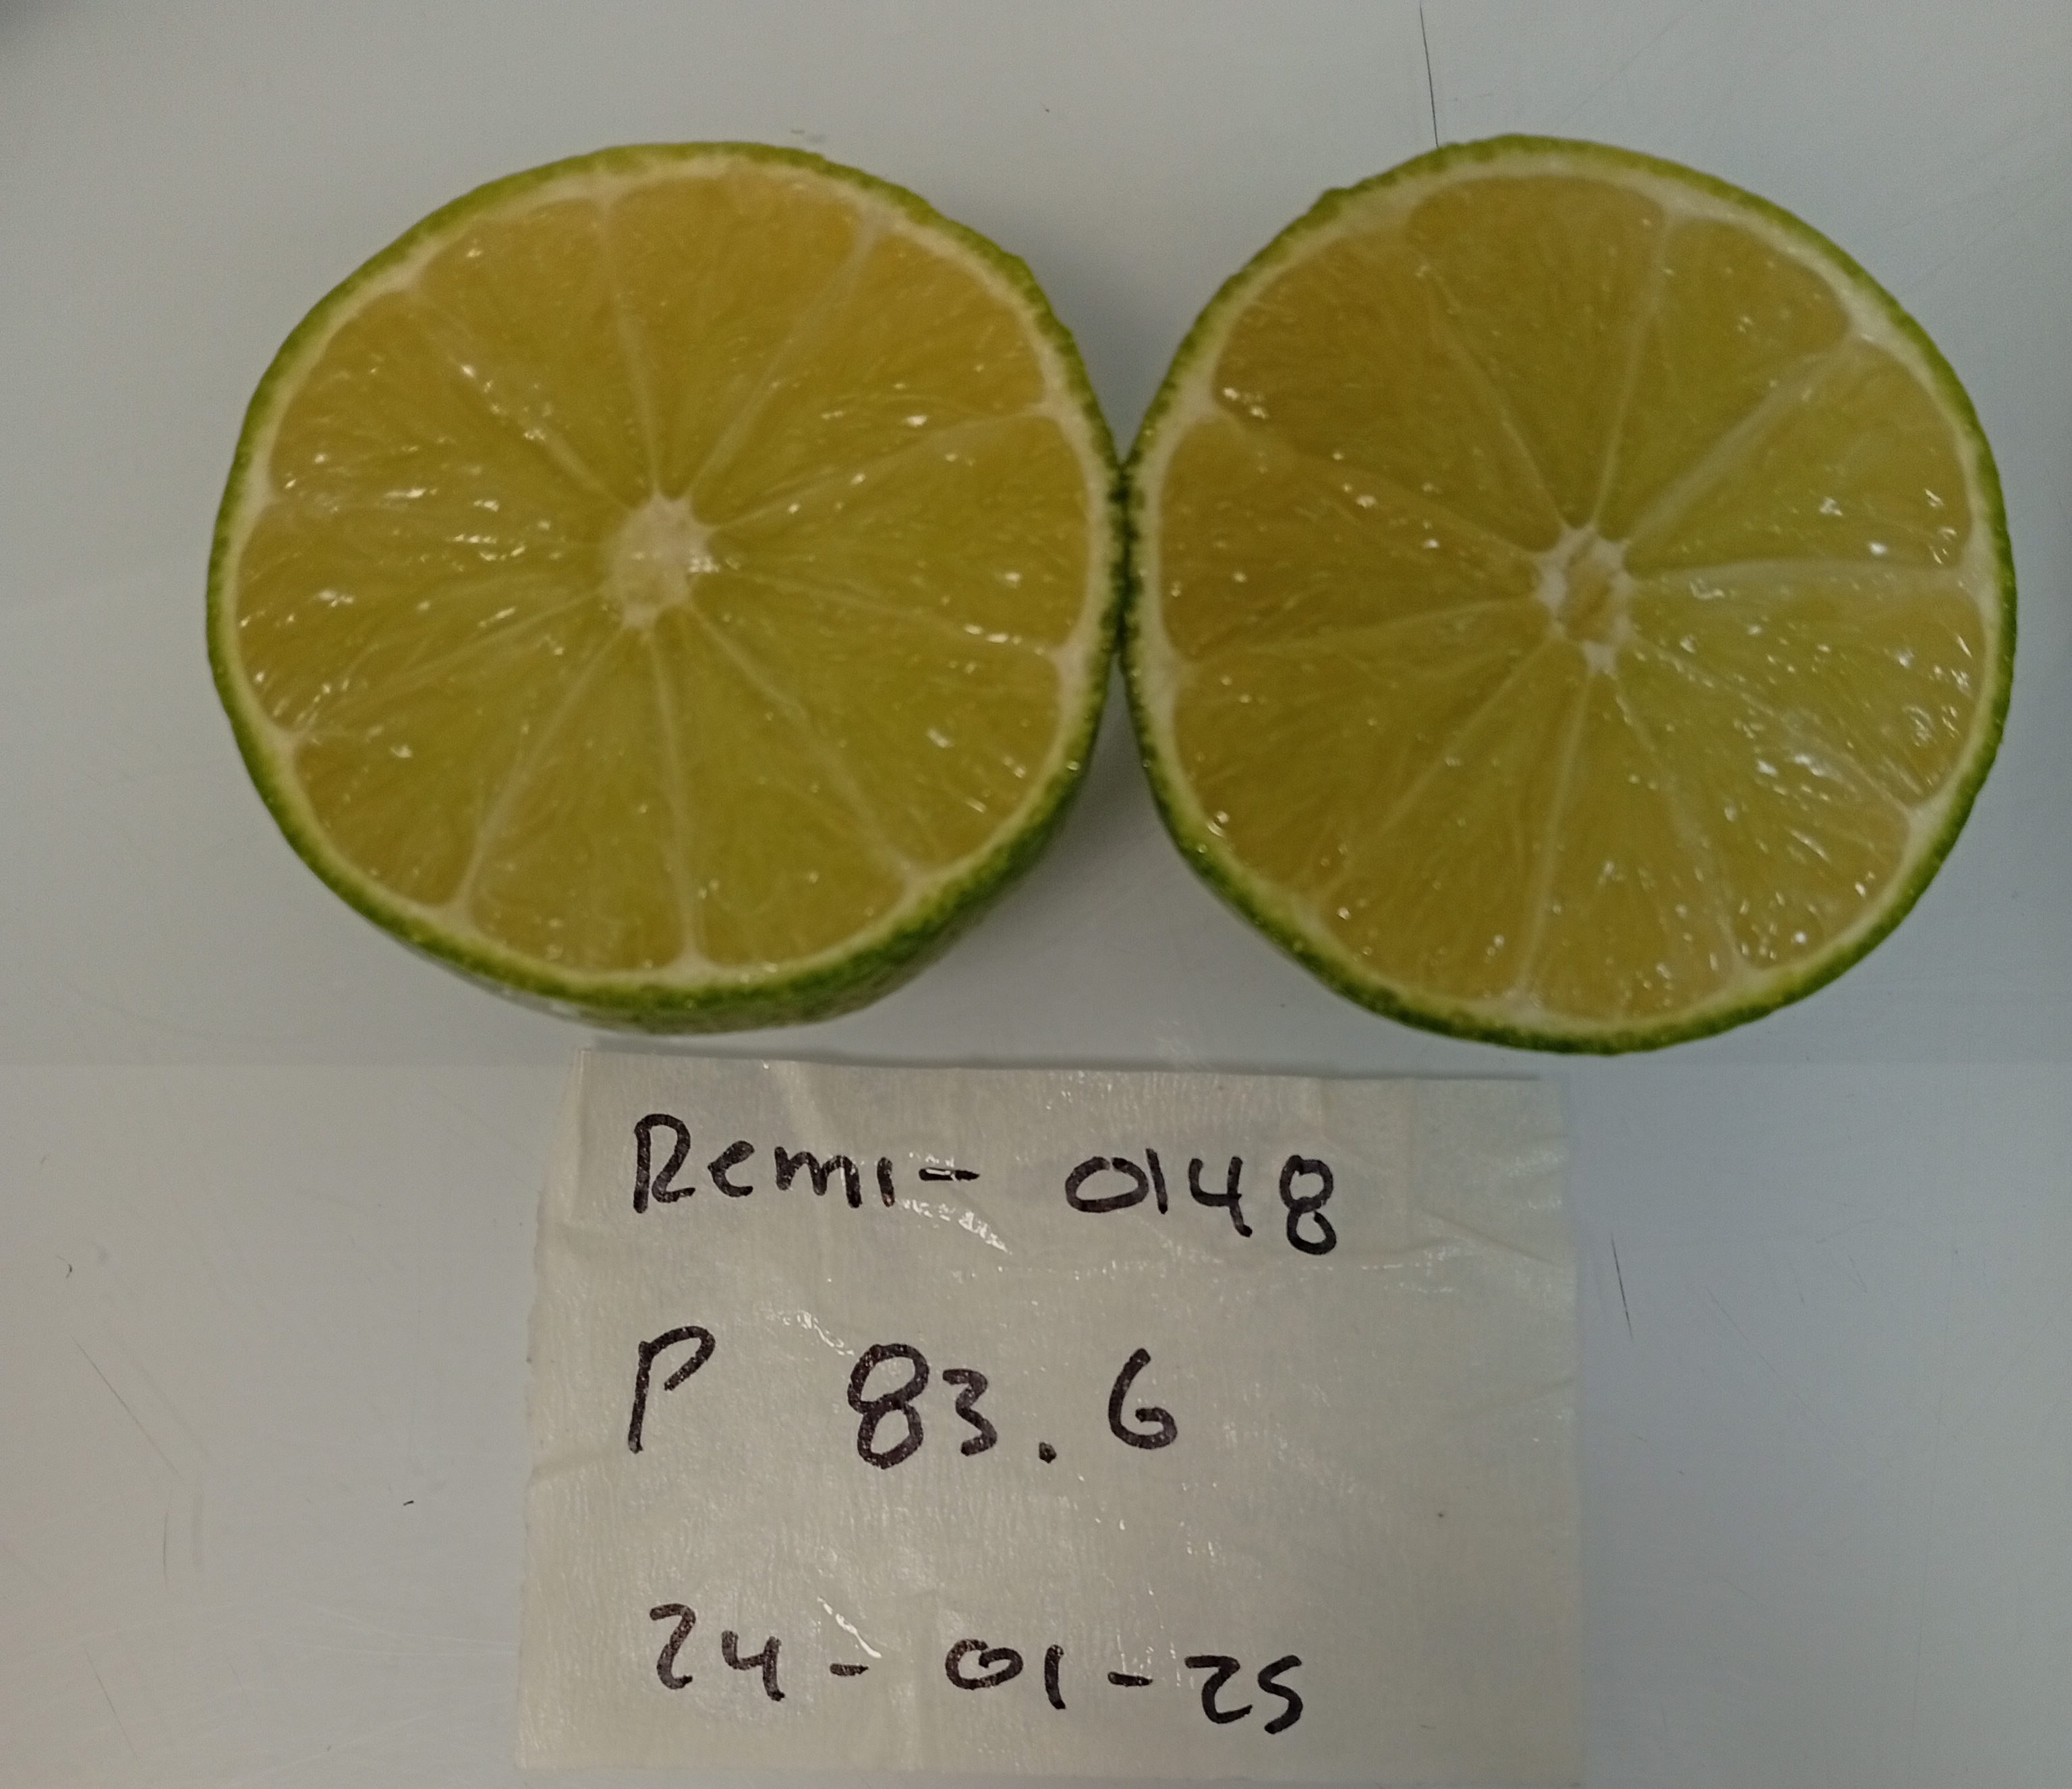 Remi- 0148
P 83.6
24-01-25